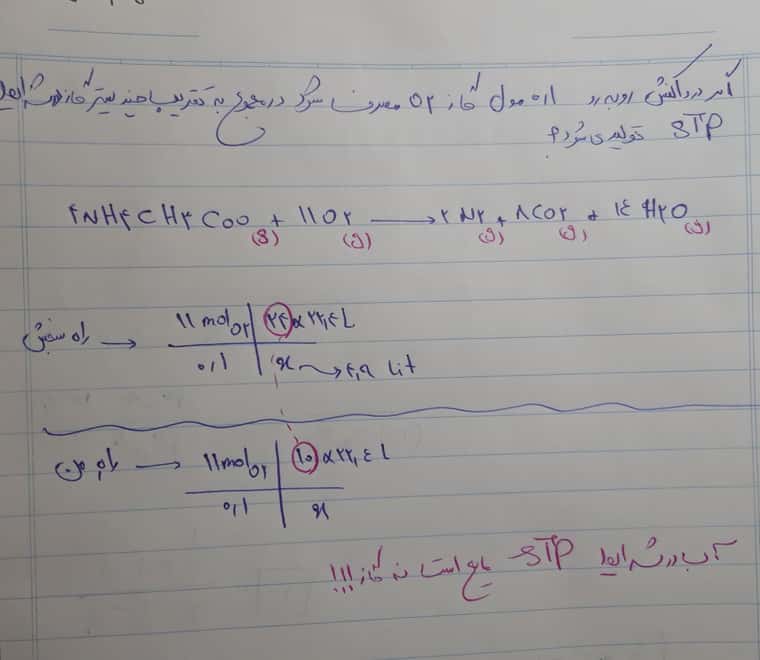 اگر در واکنش روبه‌رو ۰/۱ مول گاز O۲ مصرف شود در مجموع به تقریب چند لیتر گاز در شرایط
STP تولید می‌شود؟
۴NH۴CH۲COO (s) + ۱۱O۲ (g) → ۲N۲ (g) + ۸CO۲ (g) + ۱۴H۲O (g)
راه سنجش → ۱۱ mol O۲ | ۲۴ × ۲۲,۴ L
۰,۱ | x → ۴,۹ Lit
راه من → ۱۱ mol O۲ | ۱۰ × ۲۲,۴ L
۰,۱ | x
آب در شرایط STP مایع است نه گاز!!!